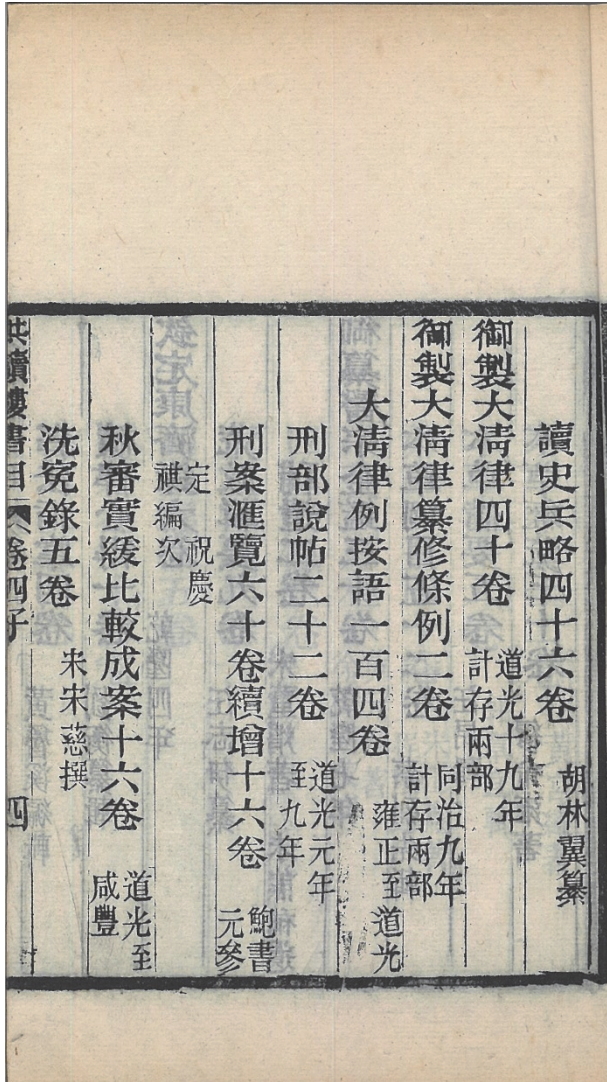 讀史兵略四十六卷 胡林翼纂
御製大清律四十卷 道光十九年 計存兩部
御製大清律纂修條例二卷 同治九年 計存兩部
大清律例按語一百四卷 雍正至道光
刑部說帖二十二卷 道光元年 至九年
刑案滙覽六十卷續增十六卷 鮑書 元參
定 祝慶 祺編次
秋審實緩比較成案十六卷 道光至 咸豐
洗冤錄五卷 宋宋慈撰
共讀樓書目 卷四子 四